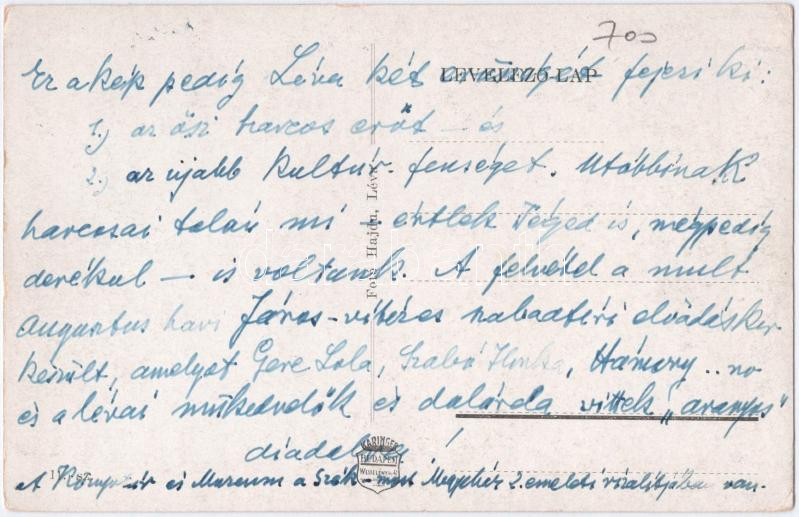 700
LEVELEZŐ-LAP
Ez a kép pedig Léva két fejezi ki:
1.) az ősi harcos erőt — és
2.) az újabb kultúr-fenséget. Utóbbinak
harcosai talán mi — értlek Téged is, mégpedig
derékul — is voltunk. A felvétel a mult
Augusztus havi János-vitézes szabadtéri előadáskor
készült, amelyet Gere Lola, Szabó Ilonka, Hámory .. no
és a lévai műkedvelők és dalárda vittek „aranyos"
diadalra!
Foto Hajdu, Léva
KARINGER
BUDAPEST
A Könyvtár és Muzeum a Szék- most Megyeház 2. emeleti vizalitjában van.